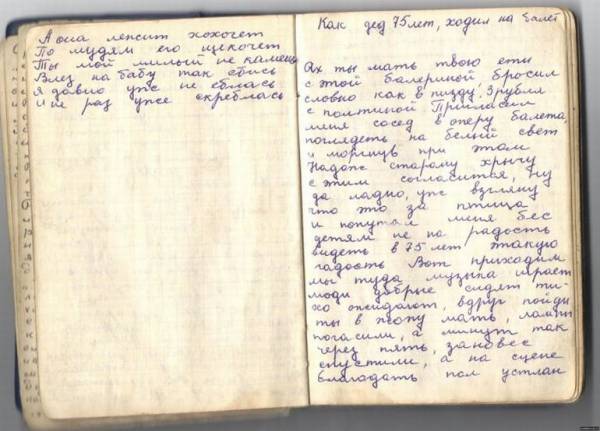 А она лепсит хохочет
По мудям его щекочет
Ты мой милый не камень
Влез на бабу так ебись
Я давно уже не еблась
И не раз уже скреблась
Как дед 75 лет, ходил на балет
Ах ты мать твою еты
с этой балериной бросил
словно как в пизду. 3 рубля
с полтиной Пригласил
меня сосед в оперу балета,
поглядеть на белый свет
и моргнув при этом
Надоже старому хрычу
с этим согласится, ну
да ладно, уже взгляну
что это за птица
и попутал меня бес
детям не на радость
видеть в 75 лет такую
гадость Вот приходим
мы туда музыка играет
люди добрые сидят ти-
хо ожидают, вдруг пойди
ты в жопу мать, лампы
погасили, а минут так
через пять, занавес
спустили, а на сцене
благодать пол устлан